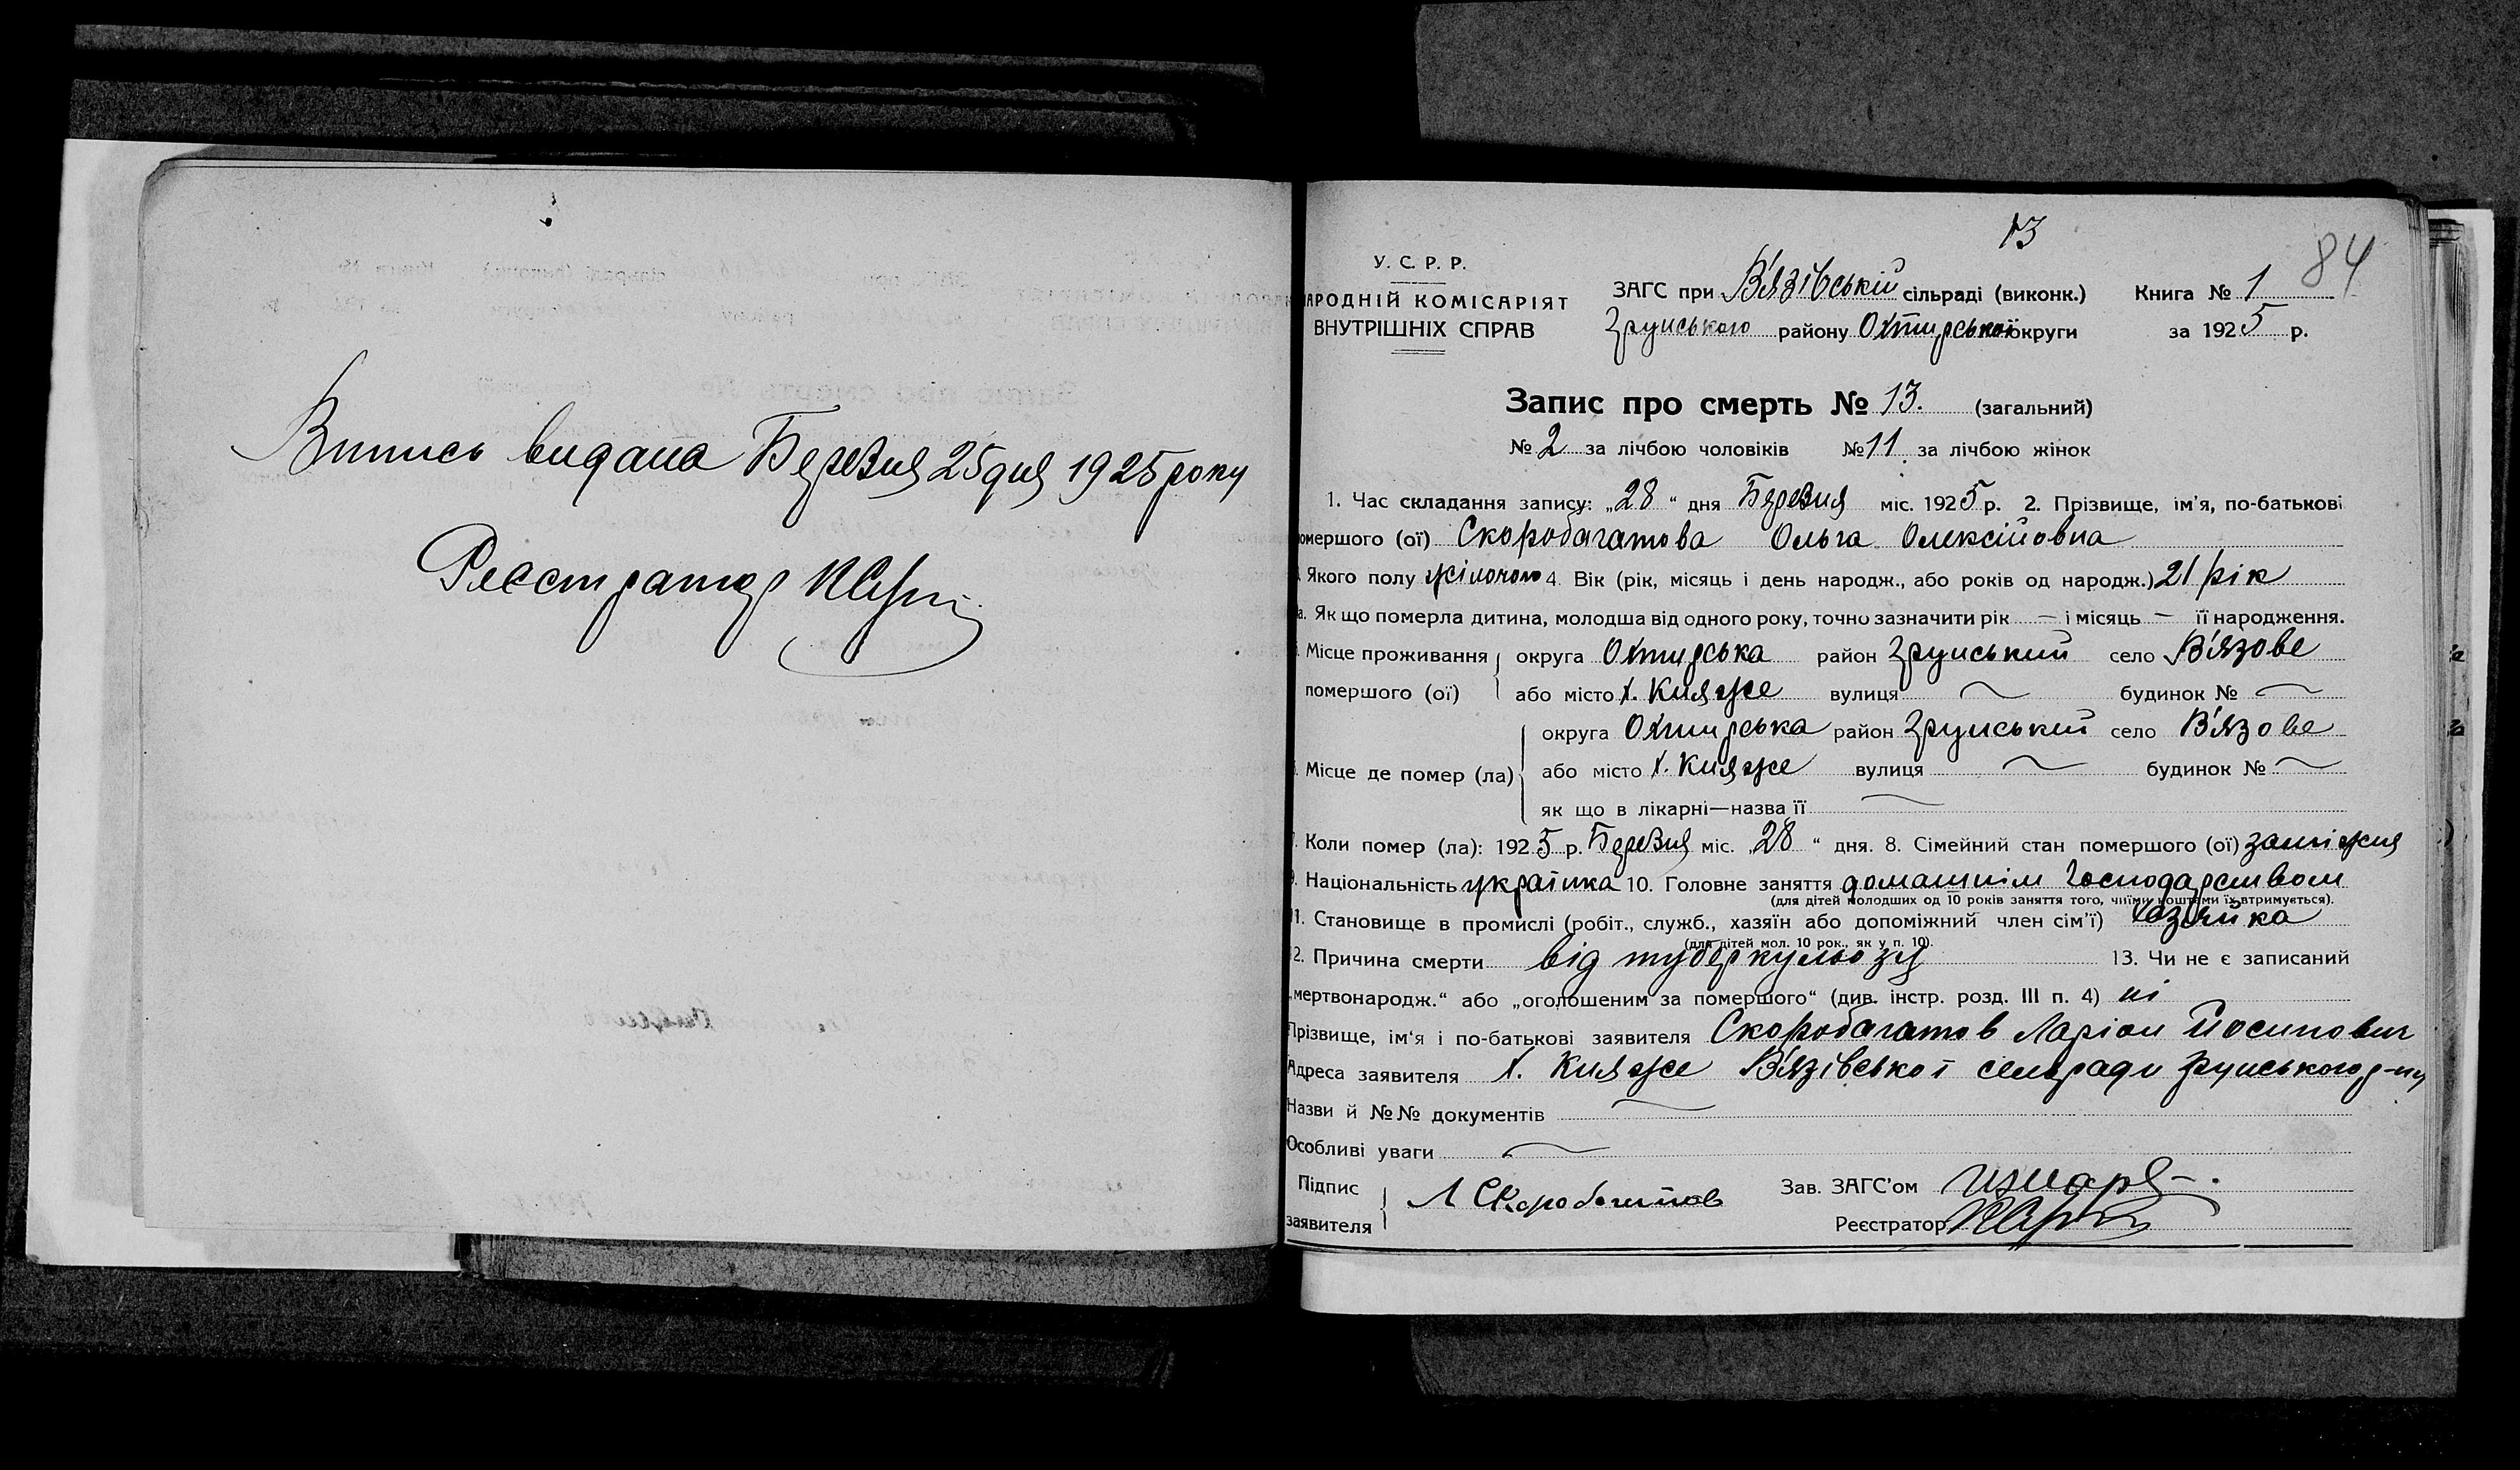 Випись видана Березня 25 дня 1925 року
Реєстратор
13
84
У. С. Р. Р.
НАРОДНІЙ КОМІСАРІЯТ
ВНУТРІШНІХ СПРАВ
ЗАГС при В'язівській сільраді (виконк.) Книга № 1
Грунського району Охтирської округи за 1925 р.
Запис про смерть № 13. (загальний)
№ 2 за лічбою чоловіків № 11. за лічбою жінок
1. Час складання запису: „28“ дня Березня міс. 1925 р. 2. Прізвище, ім'я, по-батькові
омершого (ої) Скоробагатова Ольга Олексіїовна
Якого полу жіночого 4. Вік (рік, місяць і день народж., або років од народж.) 21 рік
а. Як що померла дитина, молодша від одного року, точно зазначити рік — і місяць — її народження.
Місце проживання округа Охтирська район Грунський село В'язове
помершого (ої) або місто х. Княже вулиця — будинок № —
округа Охтирська район Грунський село В'язове
Місце де помер (ла) або місто х. Княже вулиця — будинок № —
як що в лікарні—назва її —
Коли помер (ла): 1925 р. Березня міс. „28“ дня. 8. Сімейний стан помершого (ої) заміжня
9. Національність українка 10. Головне заняття домашнім господарством
(для дітей молодших од 10 років заняття того, чиїми коштами їх втримується).
11. Становище в промислі (робіт., служб., хазяїн або допоміжний член сім'ї) хазяйка
(для дітей мол. 10 рок., як у п. 10).
12. Причина смерти від туберкульозу 13. Чи не є записаний
„мертвонародж.“ або „оголошеним за помершого“ (див. інстр. розд. III п. 4) ні
Прізвище, ім'я і по-батькові заявителя Скоробагатов Ларіон Йосипович
Адреса заявителя х. Княже В'язівської сельради Грунського р-ну
Назви й №№ документів —
Особливі уваги —
Підпис заявителя Л Скоробогатов Зав. ЗАГС'ом
Реєстратор